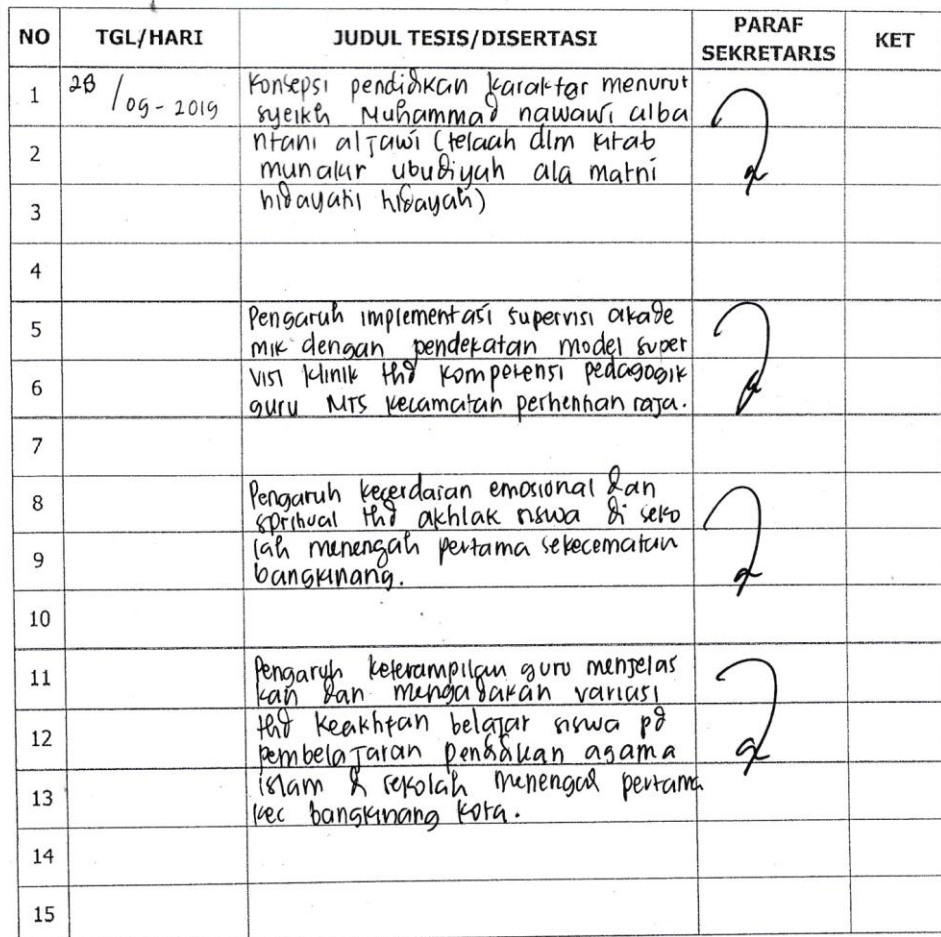 NO TGL/HARI JUDUL TESIS/DISERTASI PARAF SEKRETARIS KET
1 28/09-2019 Konsepsi pendidikan karakter menurut
syeikh Muhammad nawawi alba
2 ntani aljawi (telaah dlm kitab
munakur ubudiyah ala matni
3 hidayatil hidayah)
4
5 Pengaruh implementasi supervisi akade
mik dengan pendekatan model super
6 visi klinik thd kompetensi pedagogik
guru MTS kecamatan perhentian raja.
7
8 Pengaruh kecerdasan emosional dan
spritual thd akhlak siswa di seko
9 lah menengah pertama sekecematan
bangkinang.
10
11 Pengaruh keterampilan guru menjelas
kan dan mengadakan variasi
12 thd keakhtfan belajar siswa pd
pembelajaran pendidikan agama
13 islam di sekolah menengah pertama
kec bangkinang kota.
14
15